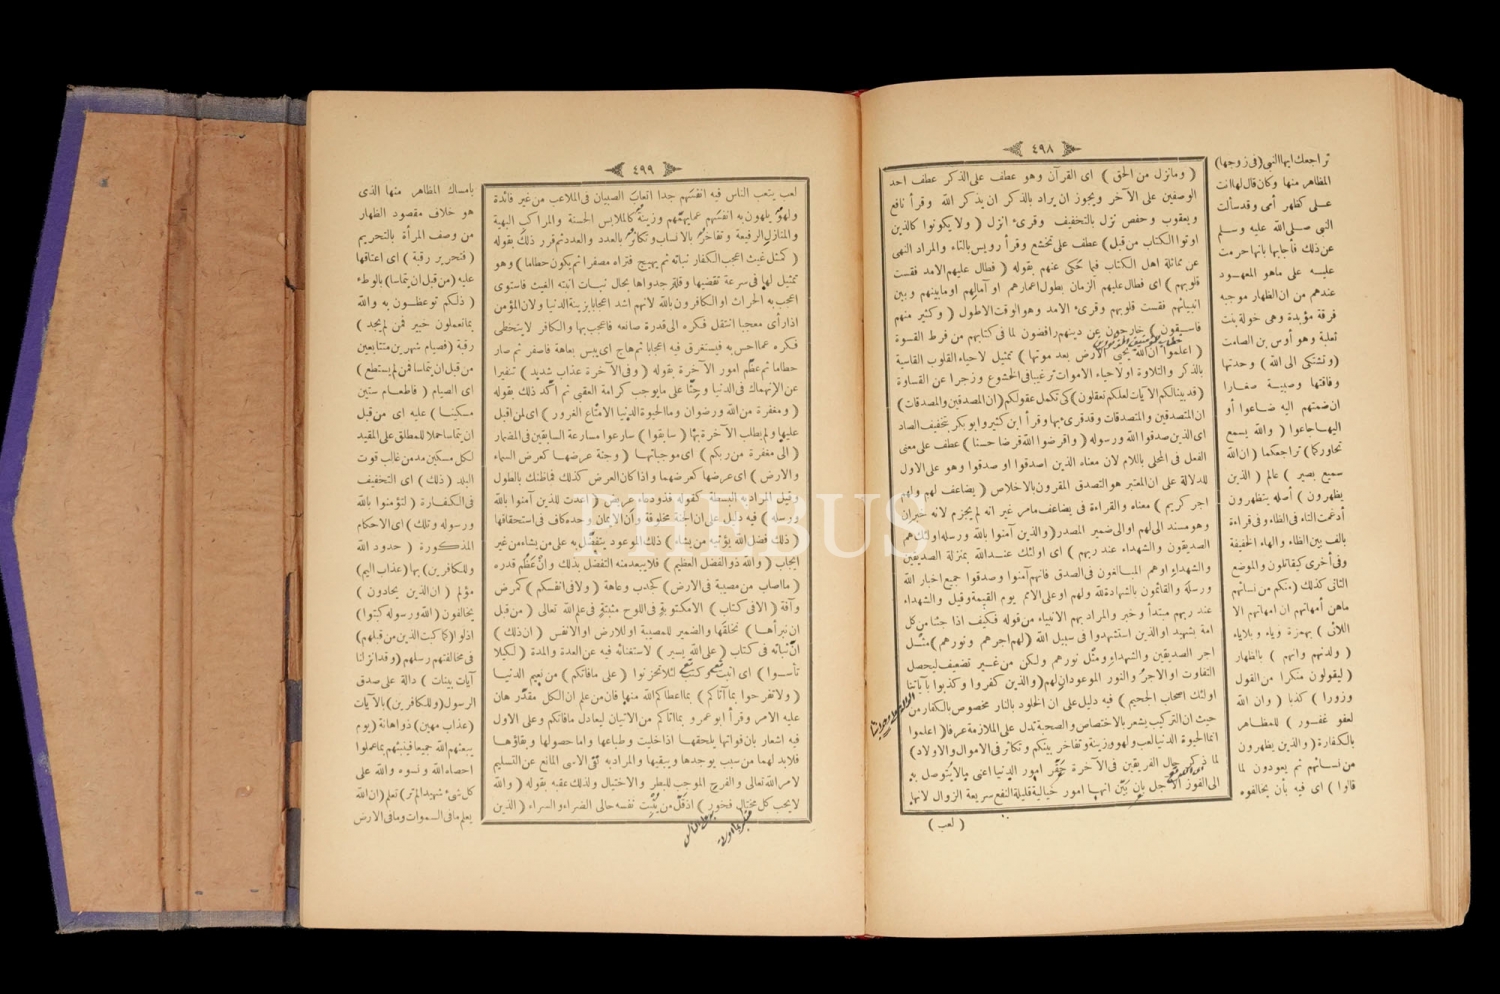 ٤٩٨
( ومانزل من الحق ) اى القرآن وهو عطف على الذكر عطف احد
الوصفين على الآخر ويجوز ان يراد بالذكر ان يذكر الله وقرأ نافع
ويعقوب وحفص نزل بالتخفيف وقرىء انزل ( ولا يكونوا كالذين
اوتوا الكتاب من قبل ) عطف على تخشع وقرأ رويس بالتاء والمراد النهى
عن مماثلة اهل الكتاب فيما حكى عنهم بقوله ( فطال عليهم الامد فقست
قلوبهم ) اى فطال عليهم الزمان بطول اعمارهم او آمالهم او مابينهم وبين
انبيائهم فقست قلوبهم وقرىء الامد وهو الوقت الاطول ( وكثير منهم
فاسقون ) خارجون عن دينهم رافضون لما فى كتابهم من فرط القسوة
( اعلموا ان الله يحيى الارض بعد موتها ) تمثيل لاحياء القلوب القاسية
بالذكر والتلاوة اولاحياء الاموات ترغيبا فى الخشوع وزجرا عن القساوة
( قد بينا لكم الآيات لعلكم تعقلون ) كى تكمل عقولكم ( ان المصدقين والمصدقات )
ان المتصدقين والمتصدقات وقد قرىء بهما وقرأ ابن كثير وابو بكر بتخفيف الصاد
اى الذين صدقوا الله ورسوله ( واقرضوا الله قرضا حسنا ) عطف على معنى
الفعل فى المحلى باللام لان معناه الذين اصدقوا او صدقوا وهو على الاول
للدلالة على ان المعتبر هو التصدق المقرون بالاخلاص ( يضاعف لهم ولهم
اجر كريم ) معناه والقراءة فى يضاعف مامر غير انه لم يجزم لانه خبران
وهو مسند الى لهم او الى ضمير المصدر ( والذين آمنوا بالله ورسله اولئك هم
الصديقون والشهداء عند ربهم ) اى اولئك عند الله بمنزلة الصديقين
والشهداء اوهم المبالغون فى الصدق فانهم آمنوا وصدقوا جميع اخبار الله
ورسله والقائمون بالشهادة لله ولهم او على الامم يوم القيمة وقيل والشهداء
عند ربهم مبتدأ وخبر والمراد بهم الانبياء من قوله فكيف اذا جئنا من كل
امة بشهيد او الذين استشهدوا فى سبيل الله ( لهم اجرهم ونورهم ) مثل
اجر الصديقين والشهداء ومثل نورهم ولكن من غير تضعيف ليحصل
التفاوت او الاجر والنور الموعودان لهم ( والذين كفروا وكذبوا بآياتنا
اولئك اصحاب الجحيم ) فيه دليل على ان الخلود بالنار مخصوص بالكفار من
حيث ان التركيب يشعر بالاختصاص والصحبة تدل على الملازمة عرفا ( اعلموا
انما الحيوة الدنيا لعب ولهو وزينة وتفاخر بينكم وتكاثر فى الاموال والاولاد )
لما ذكر حال الفريقين فى الآخرة حقر امور الدنيا اعنى مالايتوصل به
الى الفوز الآجل بان بين انها امور خيالية قليلة النفع سريعة الزوال لانها
( لعب )
تراجعك ايها النبى ( فى زوجها )
المظاهر منها وكان قال لها انت
على كظهر أمى وقد سألت
النبى صلى الله عليه وسلم
عن ذلك فأجابها بانها حرمت
عليه على ماهو المعهود
عندهم من ان الظهار موجبه
فرقة مؤبدة وهى خولة بنت
ثعلبة وهو أوس بن الصامت
( وتشتكى الى الله ) وحدتها
وفاقتها وصبية صغارا
ان ضمتهم اليه ضاعوا أو
اليها جاعوا ( والله يسمع
تحاوركما ) تراجعكما ( ان الله
سميع بصير ) عالم ( الذين
يظهرون ) أصله يتظهرون
أدغمت التاء فى الظاء وفى قراءة
بالف بين الظاء والهاء الخفيفة
وفى أخرى كيقاتلون والموضع
الثانى كذلك ( منكم من نسائهم
ماهن أمهاتهم ان امهاتهم الا
اللائى ) بهمزة وياء وبلاياء
( ولدنهم وانهم ) بالظهار
( ليقولون منكرا من القول
وزورا ) كذبا ( وان الله
لعفو غفور ) للمظاهر
بالكفارة ( والذين يظهرون
من نسائهم ثم يعودون لما
قالوا ) اى فيه بأن يخالفوه
٤٩٩
لعب يتعب الناس فيه انفسهم جدا اتعاب الصبيان فى الملاعب من غير فائدة
ولهو يلهون به انفسهم عمايهمهم وزينة كالملابس الحسنة والمراكب البهية
والمنازل الرفيعة وتفاخر بالانساب وتكاثر بالعدد والعدد ثم قرر ذلك بقوله
( كمثل غيث اعجب الكفار نباته ثم يهيج فتراه مصفرا ثم يكون حطاما ) وهو
تمثيل لها فى سرعة تقضيها وقلة جدواها بحال نبات انبته الغيث فاستوى
اعجب به الحراث او الكافرون بالله لانهم اشد اعجابا بزينة الدنيا ولان المؤمن
اذا رأى معجبا انتقل فكره الى قدرة صانعه فاعجب بها والكافر لايتخطى
فكره عما احس به فيستغرق فيه اعجابا ثم هاج اى يبس بعاهة فاصفر ثم صار
حطاما ثم عظم امور الآخرة بقوله ( وفى الآخرة عذاب شديد ) تنفيرا
عن الانهماك فى الدنيا وحثا على مايوجب كرامة العقبى ثم اكد ذلك بقوله
( ومغفرة من الله ورضوان وما الحيوة الدنيا الامتاع الغرور ) اى لمن اقبل
عليها ولم يطلب الآخرة بها ( سابقوا ) سارعوا مسارعة السابقين فى المضمار
( الى مغفرة من ربكم ) اى موجباتها ( وجنة عرضها كعرض السماء
والارض ) اى عرضها كعرضهما واذا كان العرض كذلك فماظنك بالطول
وقيل المراد به البسطة كقوله فذو دعاء عريض ( اعدت للذين آمنوا بالله
ورسله ) فيه دليل على ان الجنة مخلوقة وان الايمان وحده كاف فى استحقاقها
( ذلك فضل الله يؤتيه من يشاء ) ذلك الموعود يتفضل به على من يشاء من غير
ايجاب ( والله ذو الفضل العظيم ) فلايبعد منه التفضل بذلك وان عظم قدره
( ما اصاب من مصيبة فى الارض ) كجدب وعاهة ( ولا فى انفسكم ) كمرض
وآفة ( الا فى كتاب ) الا مكتوبة فى اللوح مثبتة فى علم الله تعالى ( من قبل
ان نبرأها ) نخلقها والضمير للمصيبة او للارض او الانفس ( ان ذلك )
ان ثباته فى كتاب ( على الله يسير ) لاستغنائه فيه عن العدة والمدة ( لكيلا
تأسوا ) اى اثبت وكتب لئلا تحزنوا ( على مافاتكم ) من نعيم الدنيا
( ولا تفرحوا بما آتاكم ) بما اعطاكم الله منها فان من علم ان الكل مقدر هان
عليه الامر وقرأ ابو عمرو بما اتاكم من الاتيان ليعادل مافاتكم وعلى الاول
فيه اشعار بان فواتها يلحقها اذا خليت وطباعها واما حصولها وبقاؤها
فلابد لهما من سبب يوجدها ويبقيها والمراد به نفى الاسى المانع عن التسليم
لامر الله تعالى والفرح الموجب للبطر والاختيال ولذلك عقبه بقوله ( والله
لايحب كل مختال فخور ) اذ قل من يثبت نفسه حالى الضراء والسراء ( الذين
بامساك المظاهر منها الذى
هو خلاف مقصود الظهار
من وصف المرأة بالتحريم
( فتحرير رقبة ) اى اعتاقها
عليه ( من قبل ان يتماسا ) بالوطء
( ذلكم توعظون به والله
بما تعملون خبير فمن لم يجد )
رقبة ( فصيام شهرين متتابعين
من قبل ان يتماسا فمن لم يستطع )
اى الصيام ( فاطعام ستين
مسكينا ) عليه اى من قبل
ان يتماسا حملا للمطلق على المقيد
لكل مسكين مد من غالب قوت
البلد ( ذلك ) اى التخفيف
فى الكفارة ( لتؤمنوا بالله
ورسوله وتلك ) اى الاحكام
المذكورة ( حدود الله
وللكافرين ) بها ( عذاب اليم )
مؤلم ( ان الذين يحادون )
يخالفون ( الله ورسوله كبتوا )
اذلوا ( كما كبت الذين من قبلهم )
فى مخالفتهم رسلهم ( وقد انزلنا
آيات بينات ) دالة على صدق
الرسول ( وللكافرين ) بالآيات
( عذاب مهين ) ذواهانة ( يوم
يبعثهم الله جميعا فينبئهم بما عملوا
احصاه الله ونسوه والله على
كل شىء شهيد الم تر ) تعلم ( ان الله
يعلم ما فى السموات وما فى الارض
PHEBUS